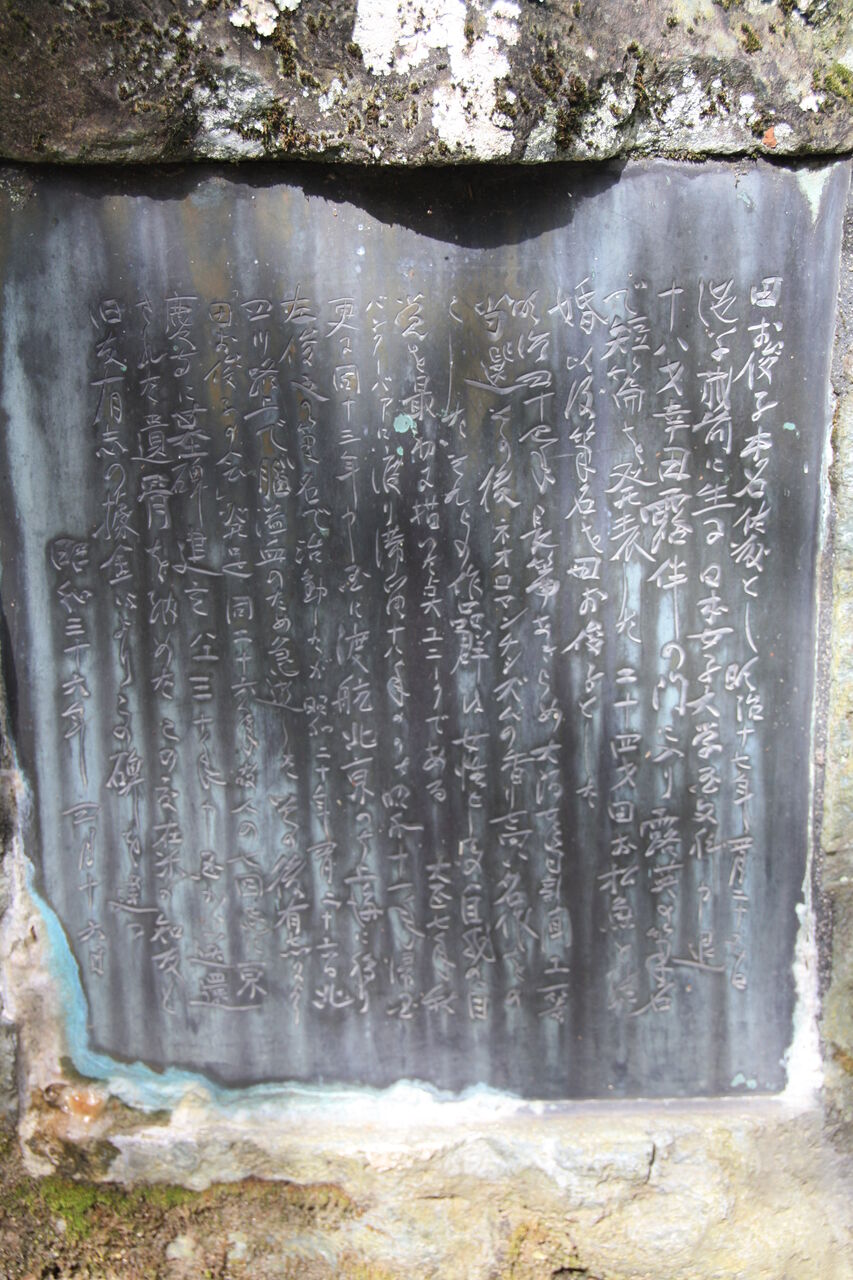 田村俊子本名佐藤とし 明治十七年四月二十五日
浅草蔵前に生る 日本女子大学国文科中退
十八才幸田露伴の門に入り 露英の筆名
で短篇を発表した 二十四才田村松魚と結
婚 以後筆名を田村俊子とした
明治四十四年 長篇あきらめ 大阪朝日新聞 一等
当選 その後 ネオロマンチシズムの香り高い名作をの
こした それらの作品群は 女性としての自我の目
覚を最初に描いた点ユニークである 大正七年秋
バンクーバアに渡り滞留十八年ののち 昭和十一年帰国
更に同十三年中国に渡航 北京のち上海に移り
左俊芝の筆名で活動したが 昭和二十年四月十六日北
四川路上で脳溢血のため急逝した その後有志
田村俊子の会 発足 同二十六年 故人の 東
慶寺に墓碑建立 二十 年中国から返還
された遺骨を納めた この 在米の知友と
旧友有志の 金によりこの碑を建つ
昭和三十六年 四月十六日